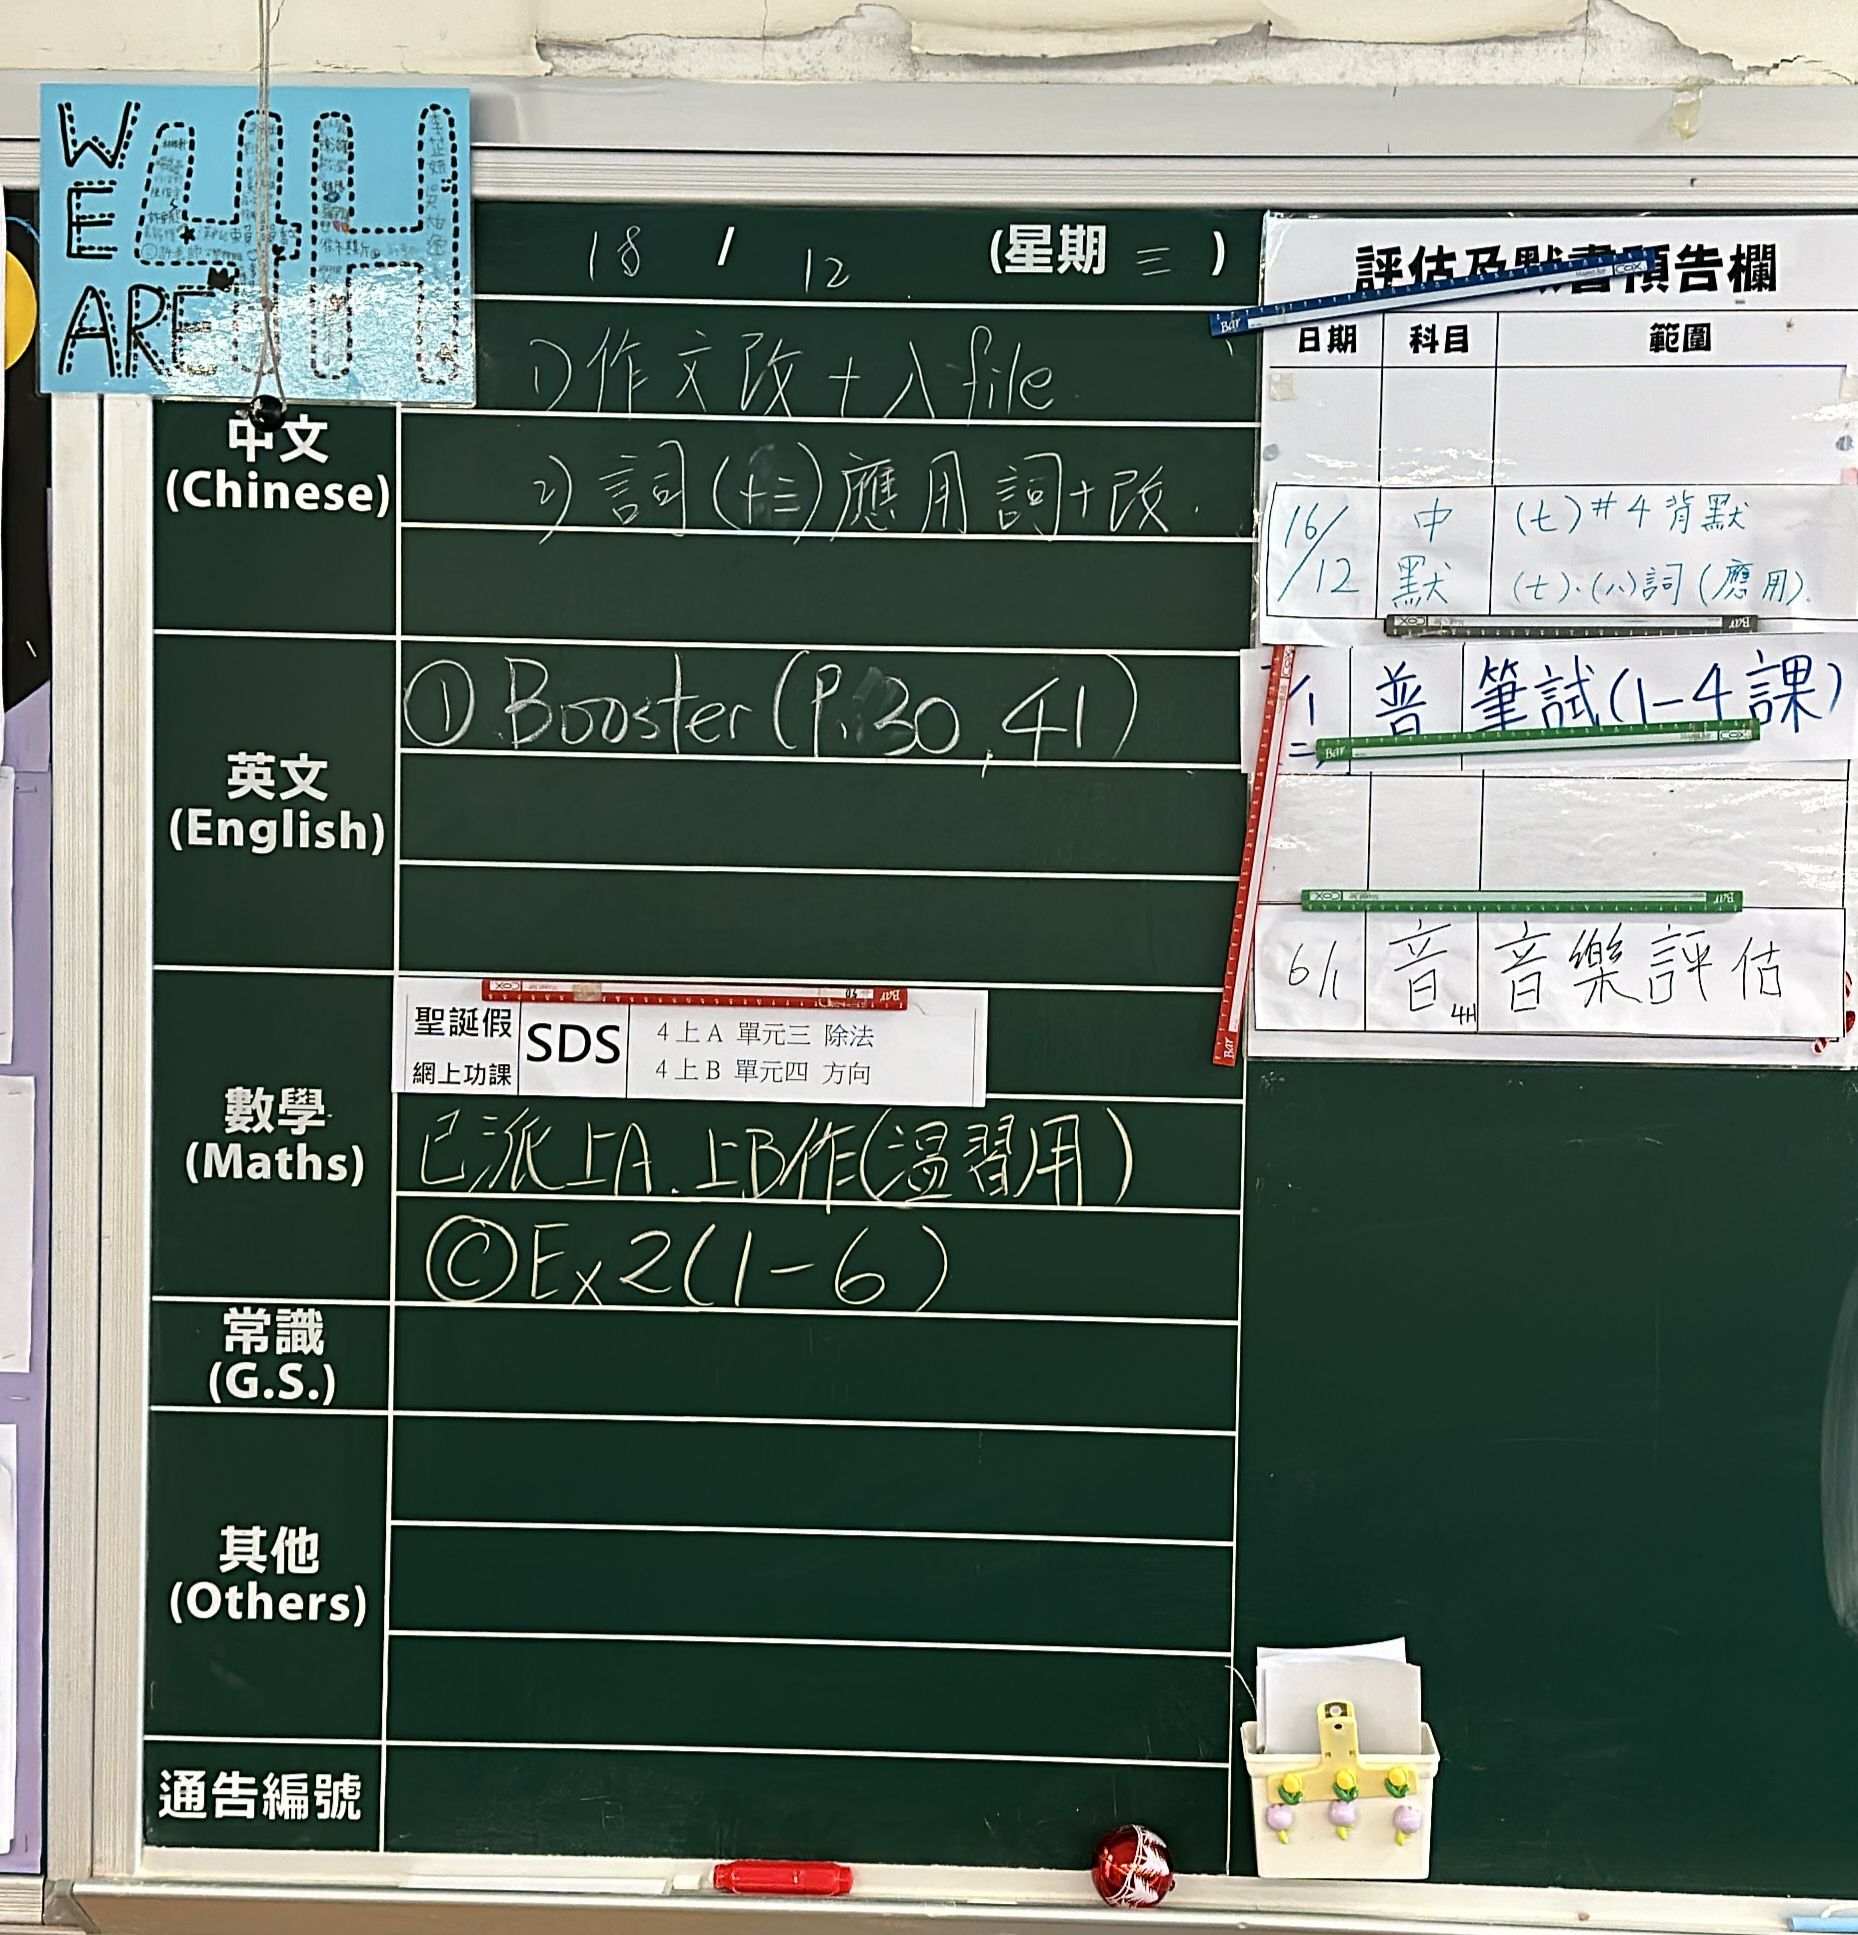 WE ARE 4H
18 / 12 (星期三)
中文
(Chinese)
1) 作文改+入file
2) 詞(十三)應用詞+改.
英文
(English)
① Booster (P.30, 41)
數學
(Maths)
聖誕假
網上功課
SDS
4上A 單元三 除法
4上B 單元四 方向
已派上A.上B作(溫習用)
Ⓒ Ex 2 (1-6)
常識
(G.S.)
其他
(Others)
通告編號
評估及默書預告欄
日期 科目 範圍
16/12 中默 (七)#4背默
(七).(八)詞(應用).
普 筆試(1-4課)
6/1 音 4H 音樂評估